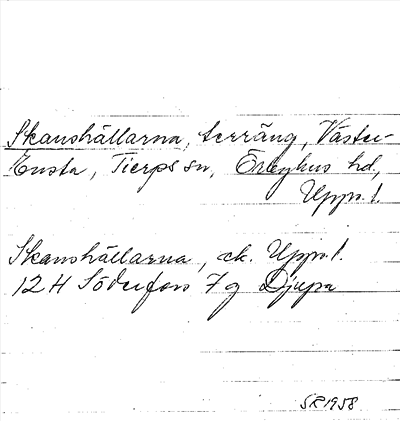 Skanshällarna, terräng, Väster-
Ensta, Tierps sn, Örbyhus hd,
Upps. l.
Skanshällarna, ek. Upps. l.
12 H Söderfors 7 g Djupa
SR 1958